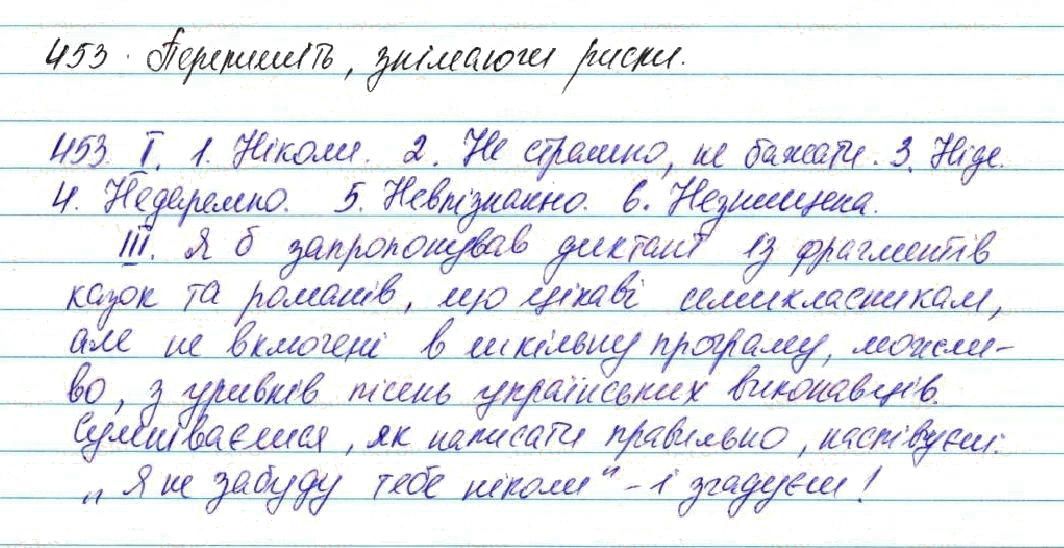 453. Перепишіть, знімаючи риски.
453. I. 1. Ніколи. 2. Не страшно, не бажати. 3. Ніде.
4. Недаремно. 5. Невпізнанно. 6. Незнищена.
III. Я б запропонував диктант із фрагментів
казок та романів, що цікаві семикласникам,
але не включені в шкільну програму, можли-
во, з уривків пісень українських виконавців.
Сумніваєшся, як написати правильно, наспівуєш:
„Я не забуду тебе ніколи" – і згадуєш!